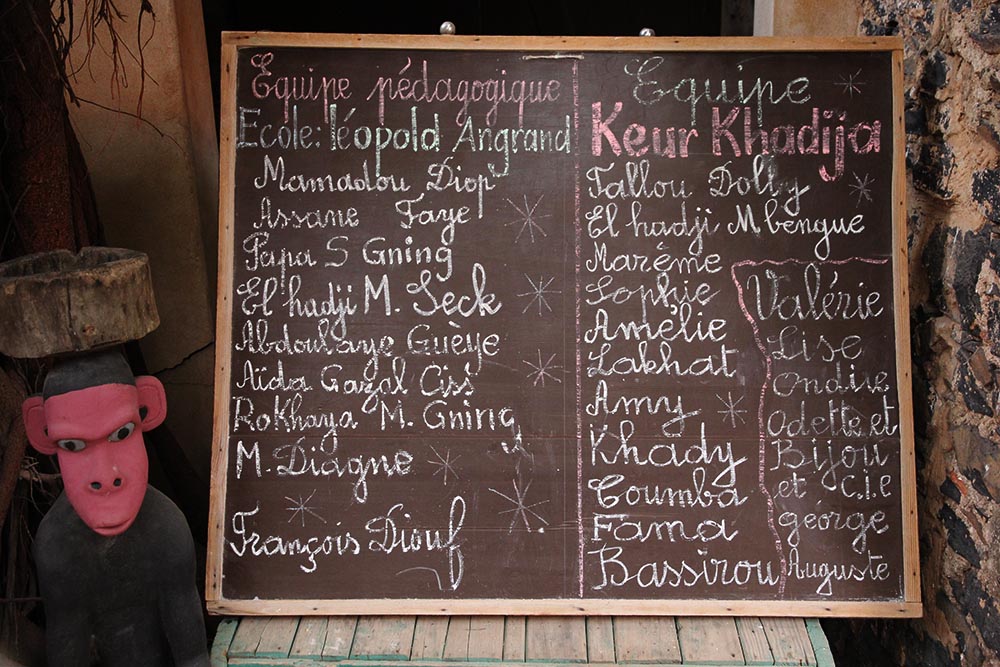 Equipe pédagogique
Ecole: léopold Angrand
Mamadou Diop
Assane Faye
Papa S Gning
El hadji M. Seck
Abdoulaye Guèye
Aïda Gazal Ciss
Rokhaya M. Gning
M. Diagne
François Diouf
Equipe
Keur Khadija
Fallou Dolly
El hadji Mbengue
Marême
Sophie
Amélie
Lakhat
Amy
Khady
Coumba
Fama
Bassirou
Valérie
Lise
Ondine
Odette et
Bijou
et c.i.e
géorge
Auguste